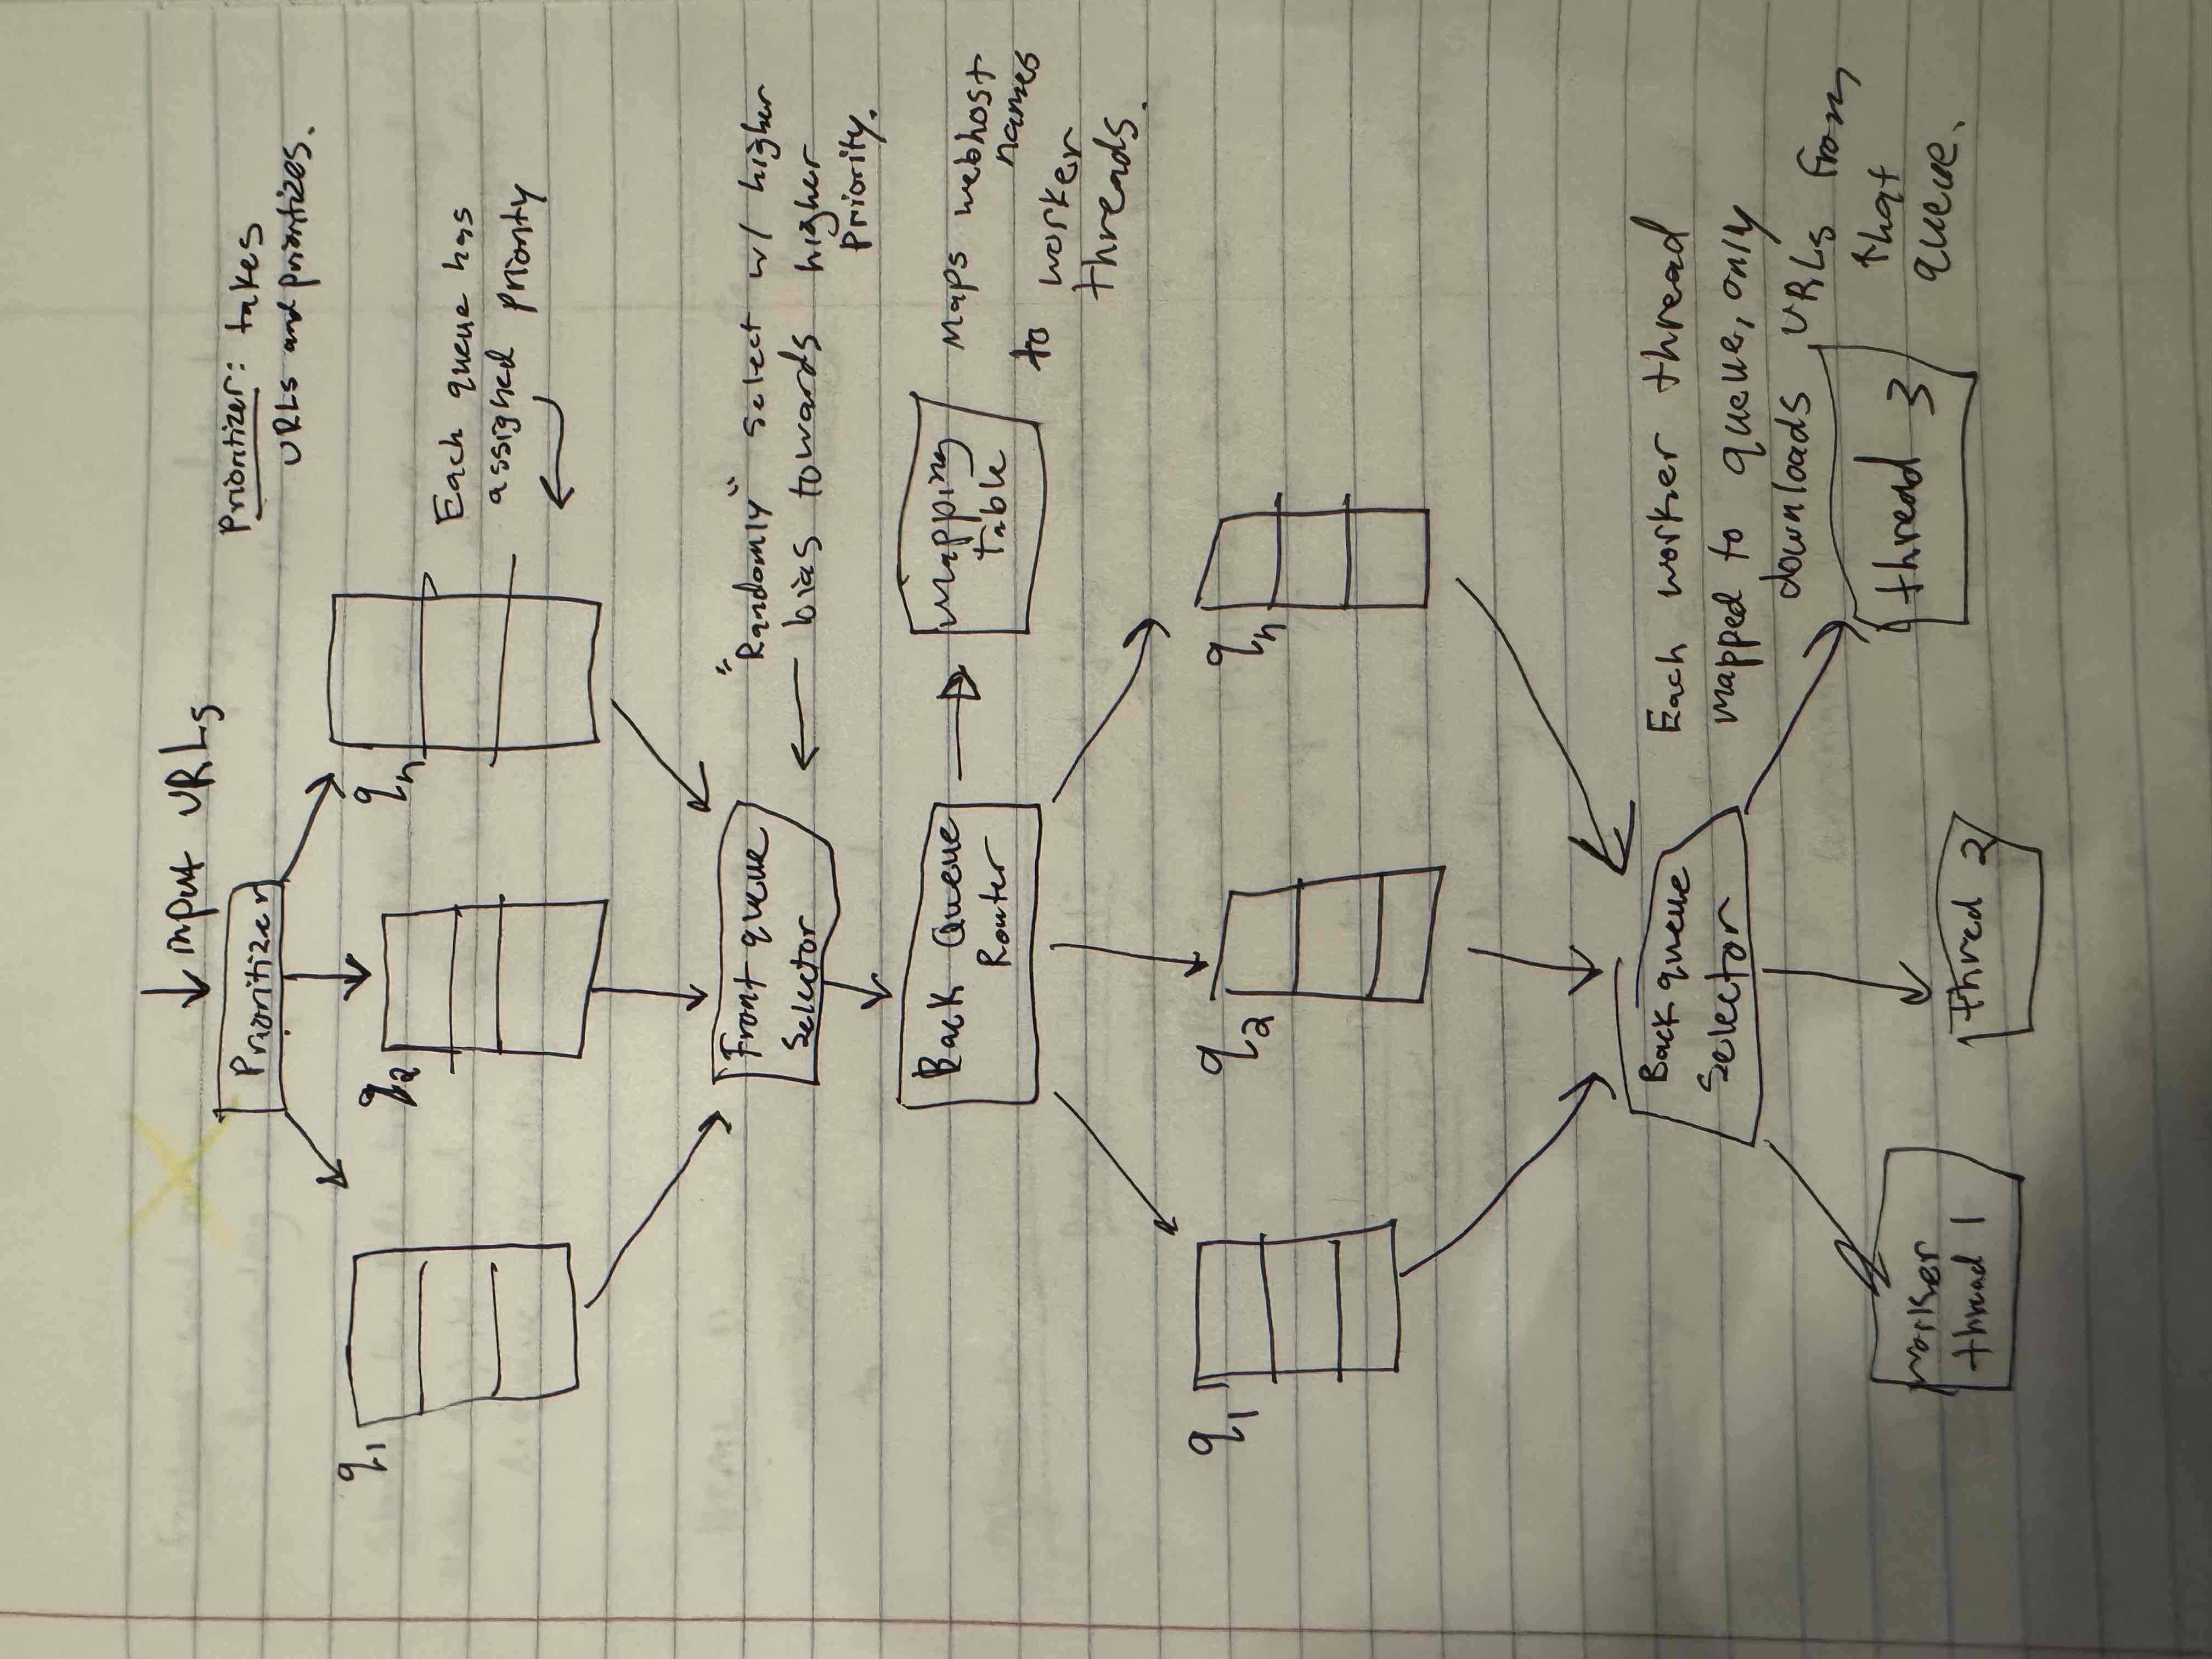 input URLs
Prioritizer: takes
URLs and prioritizes.
Prioritizer
q1
q2
qn
Each queue has
assigned priority
"Randomly" select w/ higher
bias towards higher
Priority.
Front queue
Selector
Back Queue
Router
Mapping
table
Maps webhost
names
to worker
threads.
q1
q2
qn
Each worker thread
mapped to queue, only
downloads URLs from
that
queue.
Back queue
Selector
worker
thread 1
thred 2
thread 3